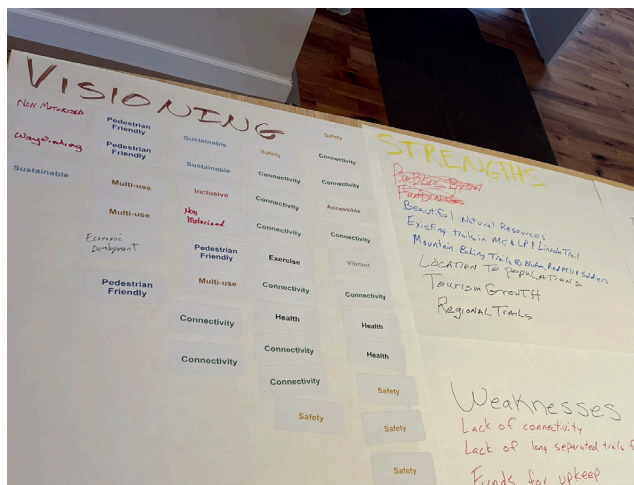 VISIONING
Non Motorized
Wayfinding
Sustainable
Pedestrian
Friendly
Pedestrian
Friendly
Multi-use
Multi-use
Economic
Development
Pedestrian
Friendly
Sustainable
Sustainable
Inclusive
Non
Motorized
Pedestrian
Friendly
Multi-use
Connectivity
Connectivity
Safety
Connectivity
Connectivity
Connectivity
Exercise
Connectivity
Health
Connectivity
Connectivity
Safety
Safety
Connectivity
Connectivity
Accessible
Connectivity
Vibrant
Connectivity
Health
Health
Safety
Safety
Safety
STRENGTHS
Beautiful Natural Resources
Existing trails in MC & LP & Lincoln Trail
Mountain Biking Trails @ Bluhm, Red Mill & Soldiers
LOCATION TO POPULATIONS
Tourism Growth
Regional Trails
Weaknesses
Lack of connectivity
Lack of long separated trails f
Funds for upkeep